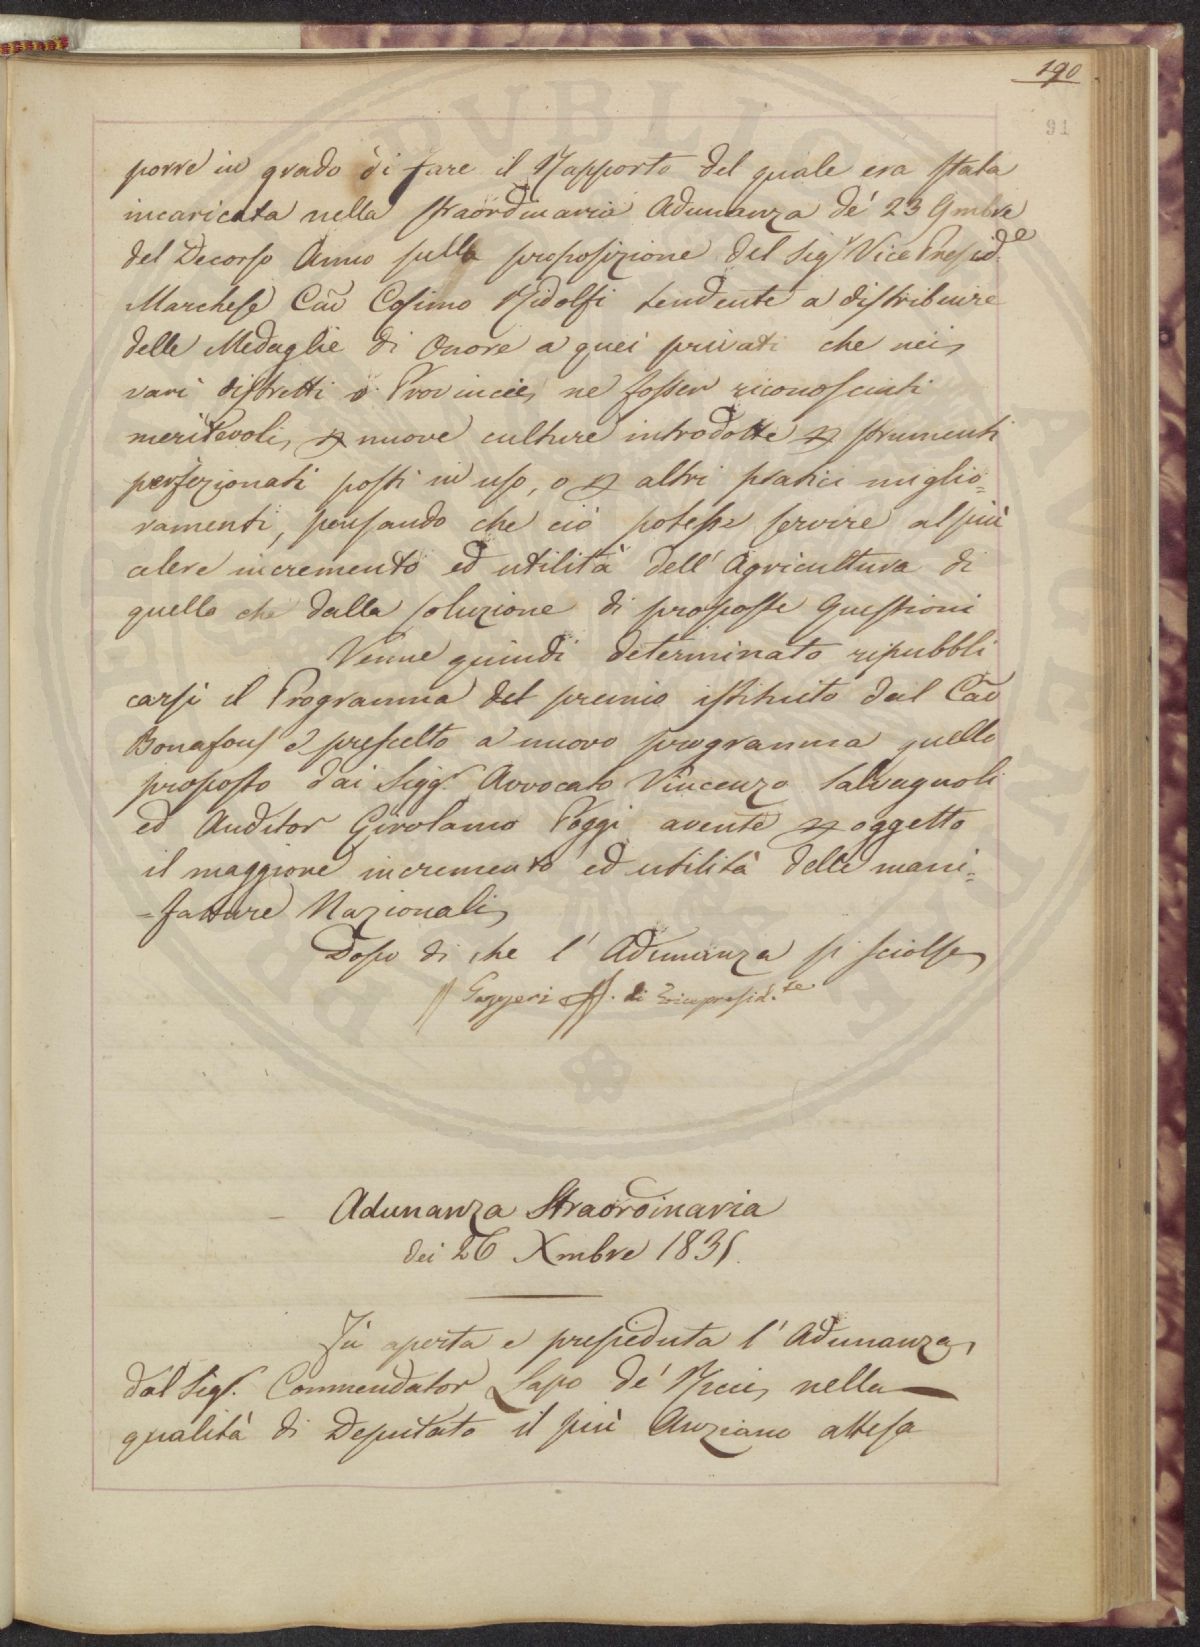 190
91
porre in grado di fare il Rapporto del quale era stata
incaricata nella straordinaria Adunanza de' 23 9mbre
del Decorso Anno sulla proposizione del Sigr Vice Presid.e
Marchese Cav Cosimo Ridolfi tendente a distribuire
delle Medaglie di Onore a quei privati che nei
vari distretti o Provincie ne fosser riconosciuti
meritevoli, p nuove culture introdotte p strumenti
perfezionati posti in uso, o p altri pratici miglio=
ramenti, pensando che ciò potesse servire al più
celere incremento ed utilità dell' Agricultura di
quello che dalla soluzione di proposte Questioni
Venne quindi determinato ripubbli
carsi il Programma del premio istituito dal Cav
Bonafous e prescelto a nuovo programma quello
proposto dai Sigg.i Avvocato Vincenzo Salvagnoli
ed Auditor Girolamo Poggi avente p oggetto
il maggiore incremento ed utilità delle mani=
=fatture Nazionali
Dopo di che l' Adunanza si sciolse
Gazzeri ff. di Vicepresid.te
Adunanza Straordinaria
dei 26 Xmbre 1831.
Fù aperta e presieduta l' Adunanza
dal Sigr. Commendator Lapo de' Ricci nella
qualità di Deputato il più Anziano attesa